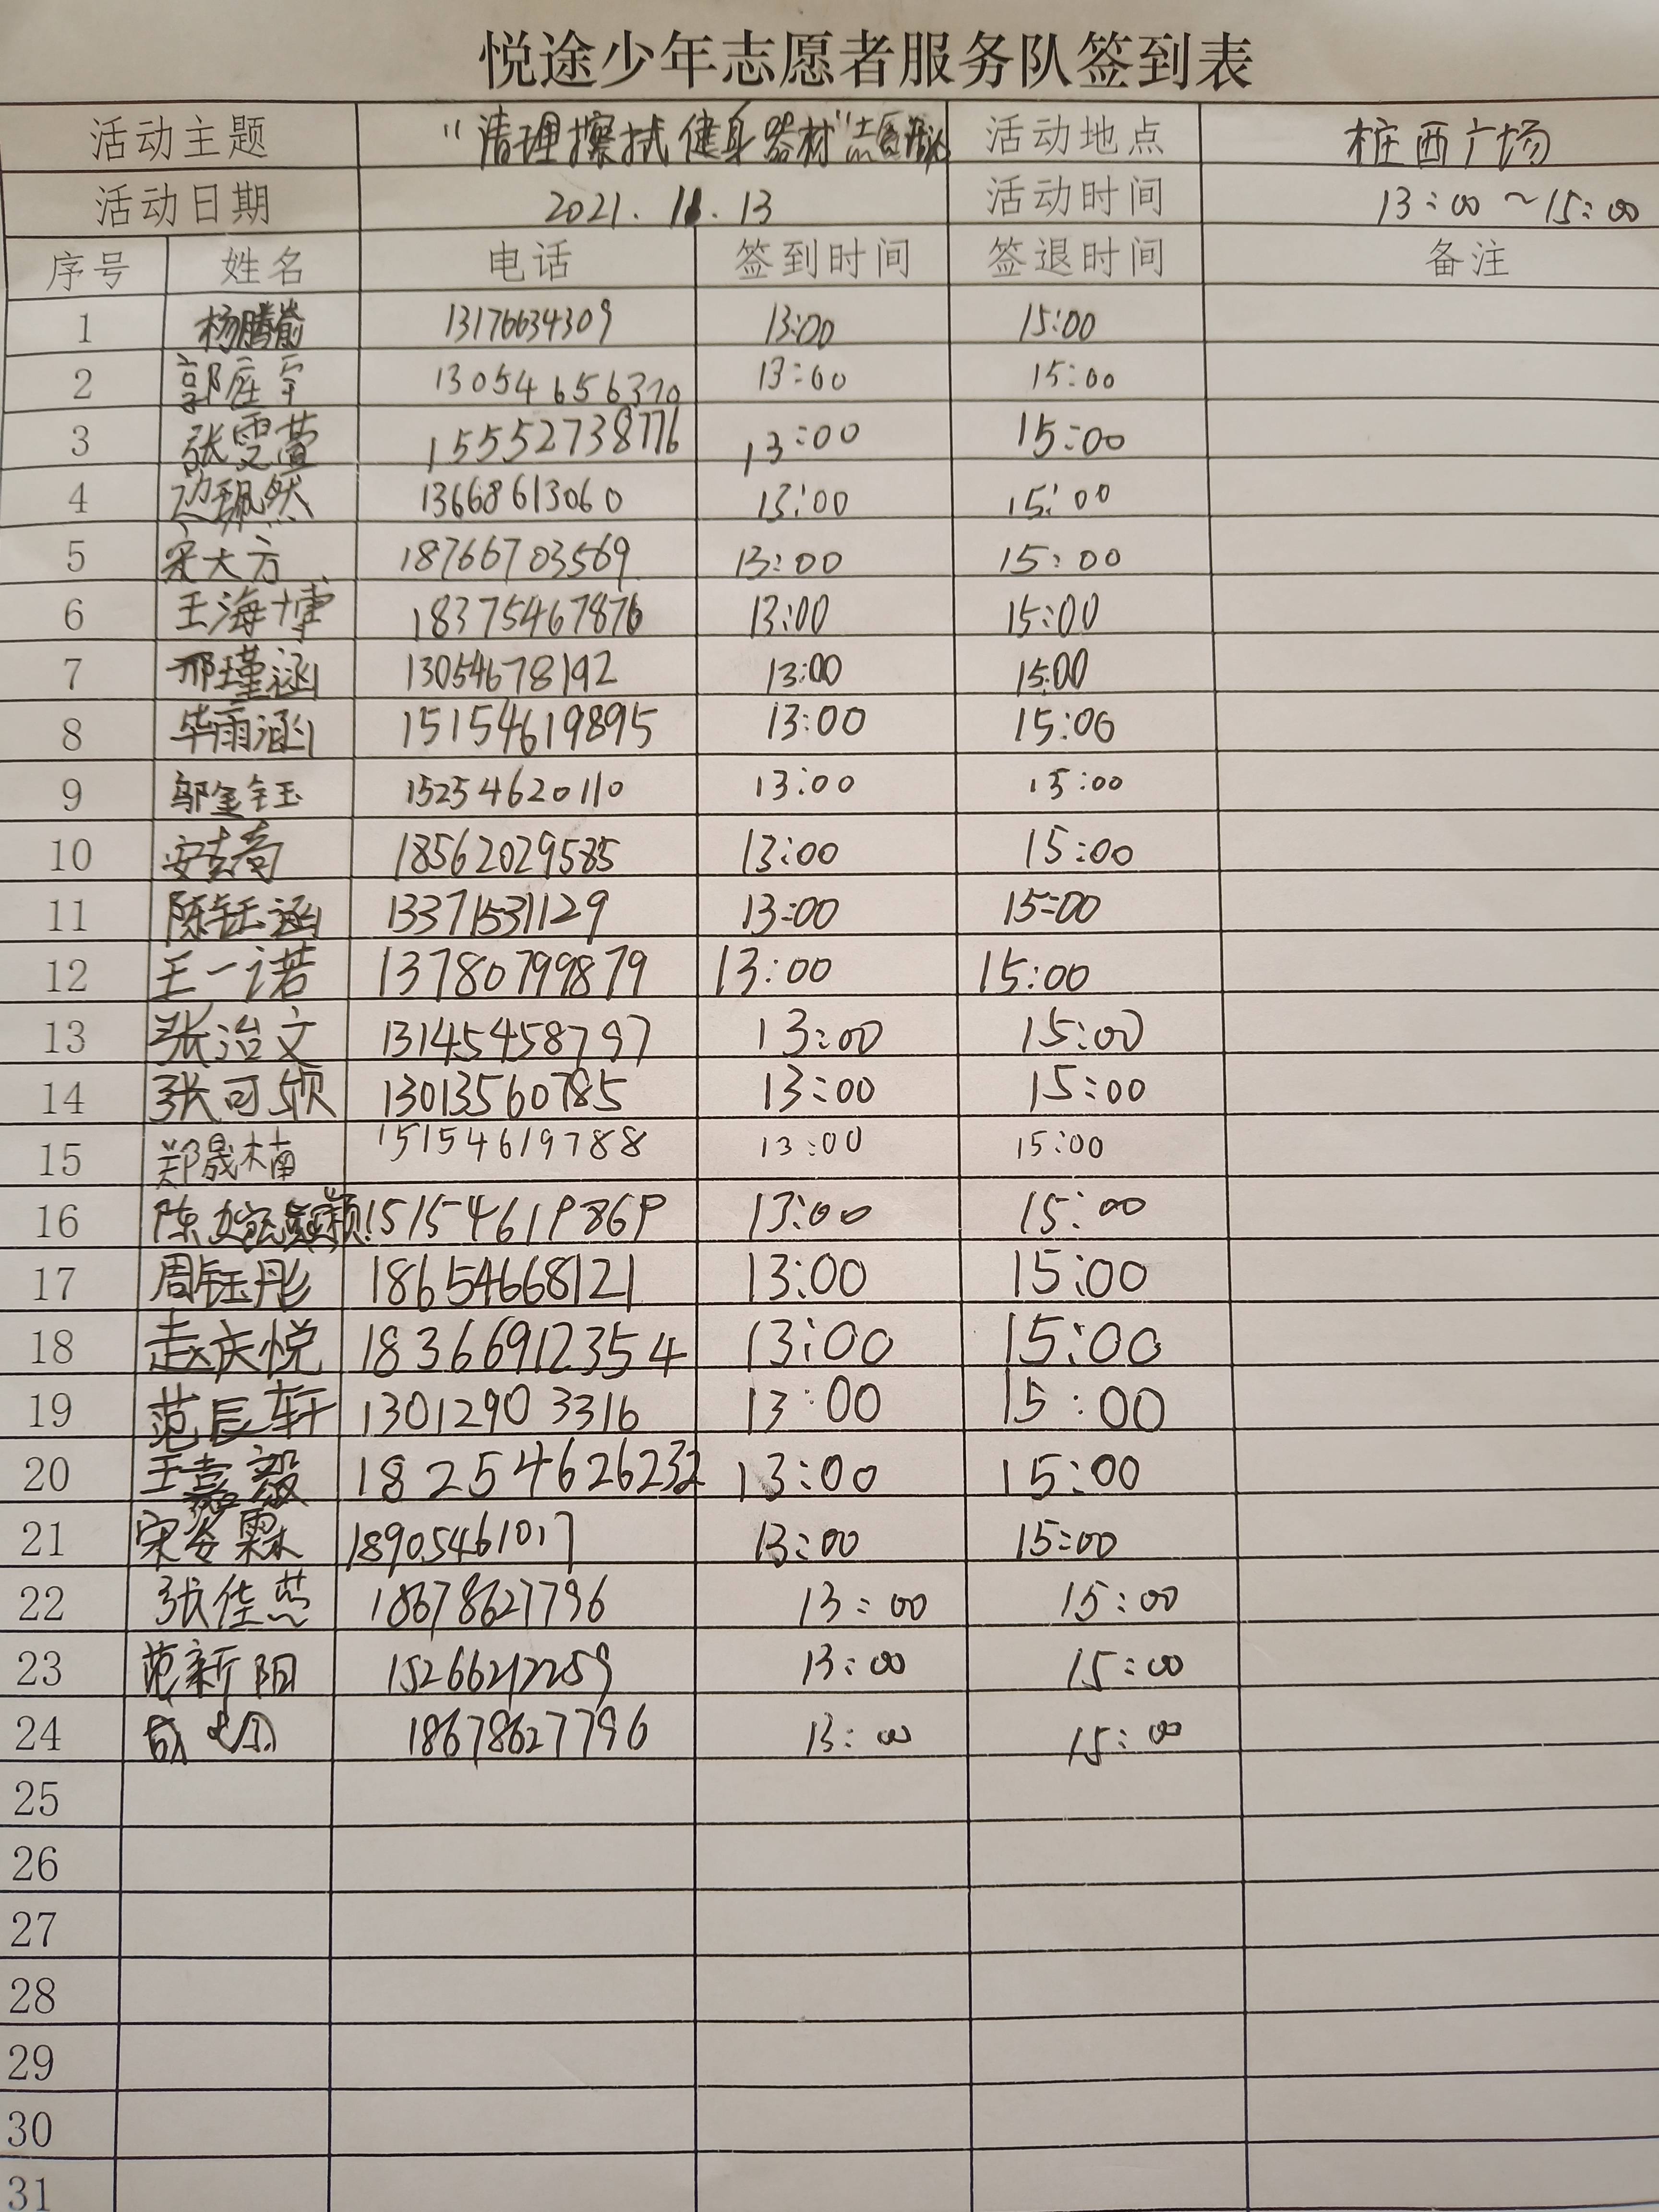 悦途少年志愿者服务队签到表
活动主题 "清理擦拭健身器材"志愿服务 活动地点 桩西广场
活动日期 2021.11.13 活动时间 13:00~15:00
序号 姓名 电话 签到时间 签退时间 备注
1 杨腾瀚 13176634309 13:00 15:00
2 郭座宇 13054656370 13:00 15:00
3 张雯萱 15552738776 13:00 15:00
4 边珮然 13668613060 13:00 15:00
5 宋大方 18766703569 13:00 15:00
6 王海博 18375467876 13:00 15:00
7 邢瑾涵 13054678192 13:00 15:00
8 毕雨涵 15154619895 13:00 15:00
9 邬金钰 15254620110 13:00 15:00
10 安 18562029585 13:00 15:00
11 陈钰涵 13371531129 13:00 15:00
12 王一诺 13780799879 13:00 15:00
13 张治文 13145458797 13:00 15:00
14 张可颀 13013560785 13:00 15:00
15 郑晟楠 15154619788 13:00 15:00
16 陈 颖 15154619869 13:00 15:00
17 周钰彤 18654668121 13:00 15:00
18 赵庆悦 18366912354 13:00 15:00
19 范辰轩 13012903316 13:00 15:00
20 王嘉毅 18254626232 13:00 15:00
21 宋安霖 18905461017 13:00 15:00
22 张佳慧 18678627796 13:00 15:00
23 范新阳 15266212259 13:00 15:00
24 18678627796 13:00 15:00
25
26
27
28
29
30
31